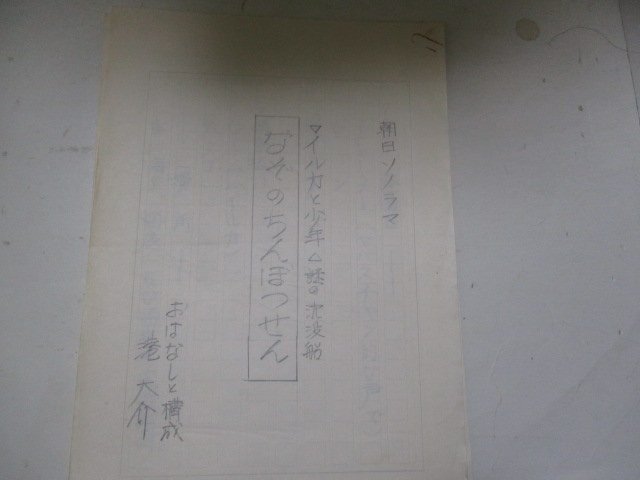 朝日ソノラマ
マイルカと少年<謎の沈没船
なぞのちんぼつせん
おはなしと構成
大介